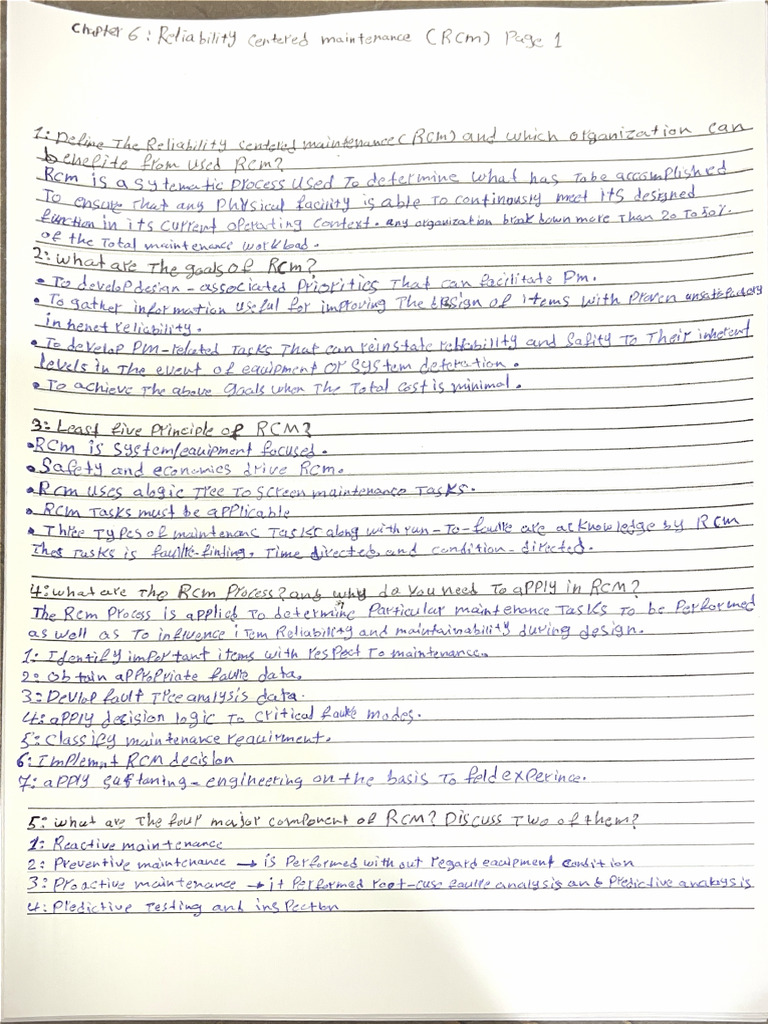 Chapter 6: Reliability centered maintenance (RCM) Page 1
1: Define The Reliability sentered maintenance (RCM) and which organization can
benefite from used RCM?
RCM is a systematic process used To determine what has To be accomplished
To ensure that any physical facility is able To continously meet its designed
function in its current operating context. any organization break down more Than 20 To 50%.
of the Total maintenance workload.
2: what are The goals of RCM?
• To develop design-associated Priorities That can facilitate PM.
• To gather information useful for improving The design of items with Proven unsatisfactory
inheret reliability.
• To develop PM-related Tasks That can reinstate reliability and Safity To Their inherent
levels in The event of equipment or system deteration.
• To achieve The above goals when The Total cost is minimal.
3: Least five principle of RCM?
• RCM is System/equipment focused.
• Safety and economics drive RCM.
• RCM uses a logic Tree To screen maintenance Tasks.
• RCM Tasks must be applicable
• Three Types of maintenanc Tasks along with run-To-faulre are acknowledge by RCM
Thes Tasks is faulre-finting, Time directed, and condition-directed.
4: what are the RCM Process? and why do you need To apply in RCM?
The RCM Process is applied To determine Particular maintenance Tasks To be Performed
as well as To influence item Reliability and maintainability during design.
1: Identify important items with respect To maintenance.
2: Obtain appropriate faulre data.
3: Devlop fault Tree analysis data.
4: apply decision logic To critical faulre modes.
5: Classify maintenance requirment.
6: Implemnt RCM decision
7: apply sustaning-engineering on the basis To feld experince.
5: what are The four major component of RCM? Discuss Two of them?
1: Reactive maintenance
2: Preventive maintenance → is Performed with out regard equipment condition
3: Proactive maintenance → it Performed root-cuse faulre analysis and Predictive analysis
4: Predictive Testing and inspection